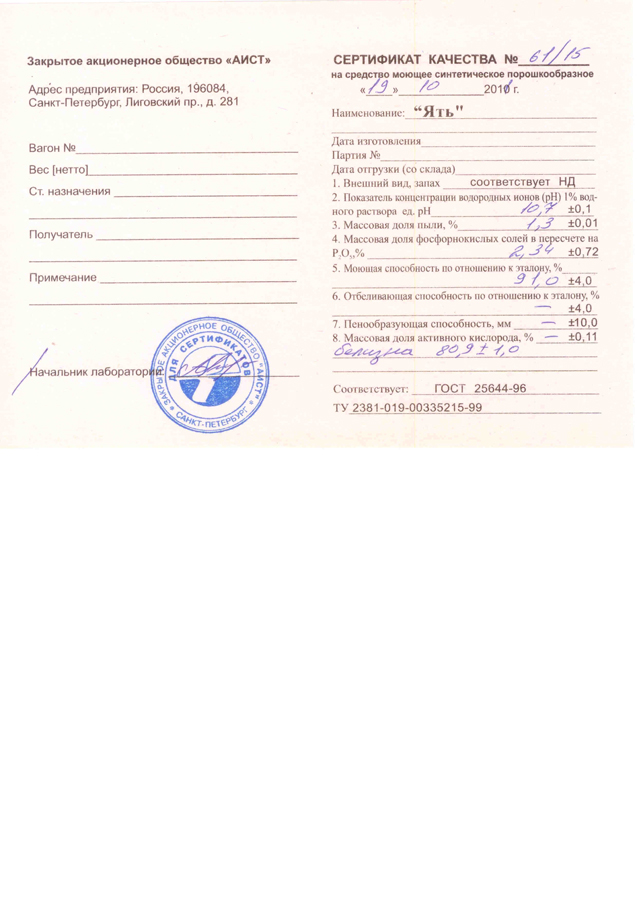 Закрытое акционерное общество «АИСТ»
Адрес предприятия: Россия, 196084,
Санкт-Петербург, Лиговский пр., д. 281
Вагон №
Вес [нетто]
Ст. назначения
Получатель
Примечание
Начальник лаборатории:
ЗАКРЫТОЕ АКЦИОНЕРНОЕ ОБЩЕСТВО "АИСТ"
* САНКТ-ПЕТЕРБУРГ *
ДЛЯ СЕРТИФИКАТОВ
СЕРТИФИКАТ КАЧЕСТВА № 61/15
на средство моющее синтетическое порошкообразное
« 19 » 10 201 г.
Наименование: "Ять"
Дата изготовления
Партия №
Дата отгрузки (со склада)
1. Внешний вид, запах соответствует НД
2. Показатель концентрации водородных ионов (рН) 1% вод-
ного раствора ед. рН 10,7 ±0,1
3. Массовая доля пыли, % 1,3 ±0,01
4. Массовая доля фосфорнокислых солей в пересчете на
P₂O₅,% 2,34 ±0,72
5. Моющая способность по отношению к эталону, %
91,0 ±4,0
6. Отбеливающая способность по отношению к эталону, %
— ±4,0
7. Пенообразующая способность, мм — ±10,0
8. Массовая доля активного кислорода, % — ±0,11
белизна 80,9 ± 1,0
Соответствует: ГОСТ 25644-96
ТУ 2381-019-00335215-99